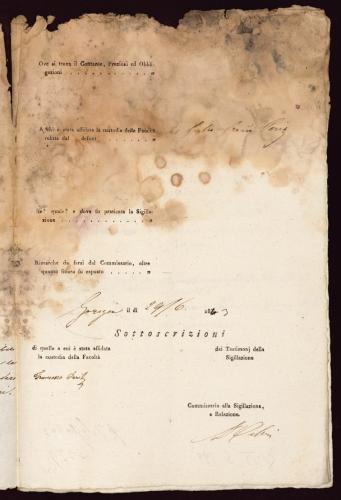 Ove si trova il Contante, Preziosi ed Obbli-
gazioni . . . . . . . . . . . "
A chi è stata affidata la custodia della Facoltà
relitta dal defont . . . . . . . . "
se? quale? e dove fu praticata la Sigilla-
zione . . . . . . . . . . . . "
Rimarche da farsi dal Commissario, oltre
quanto finora fu esposto . . . . . "
li 29/6 18
Sottoscrizioni
di quello a cui è stata affidata
la custodia della Facoltà
dei Testimonj della
Sigillazione
Francesco
Commissario alla Sigillazione,
e Relazione.